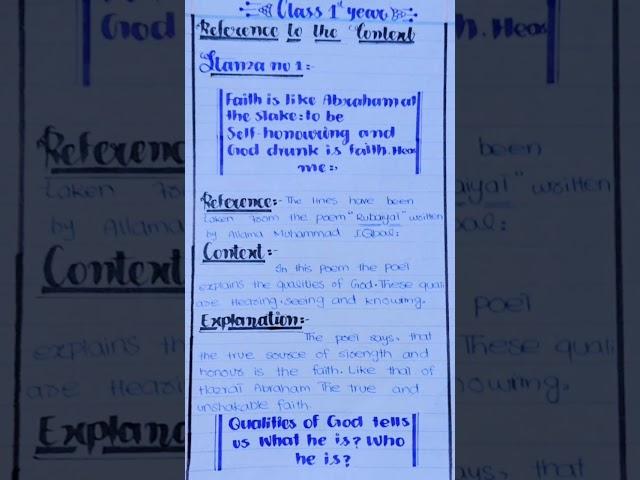 Class 1st year
Reference to the Context
Stanza no 1:-
Faith is like Abraham at
the stake: to be
Self-honouring and
God drunk is faith. Hear
me:,
Reference:- The lines have been
taken from the poem "Rubaiyat" written
by Allama Muhammad IQbal:
Context:-
In this poem the poet
explains the qualities of God. These quali
are Hearing, seeing and knowing.
Explanation:-
The poet says, that
the true source of strength and
honour is the faith. Like that of
Hazrat Abraham The true and
unshakable faith.
Qualities of God tells
us what he is? Who
he is?